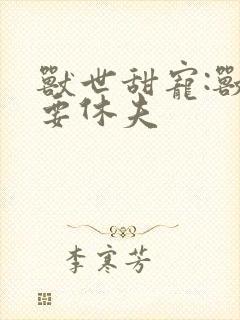 獸世甜寵:獸
要休夫
李寒芳